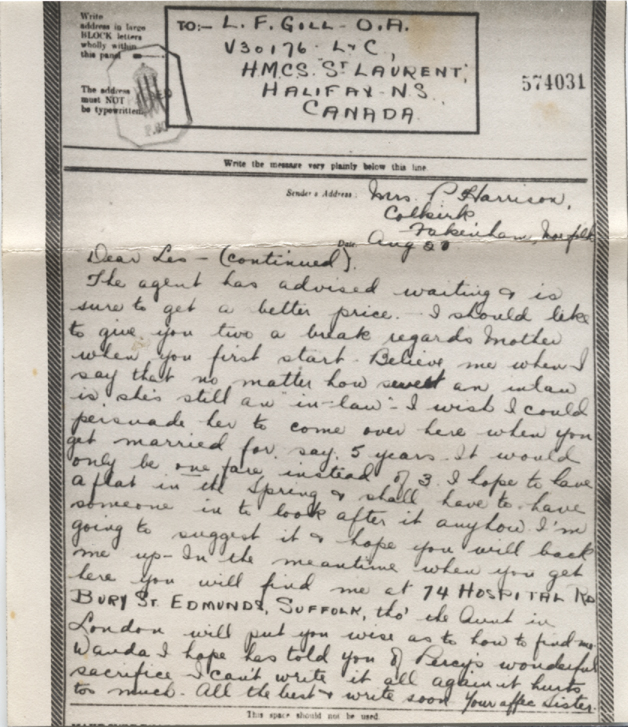 Write
address in large
BLOCK letters
wholly within
this panel
The address
must NOT
be typewritten.
TO:- L. F. GILL - O.A.
V30176 - L+C,
HMCS. ST LAURENT,
HALIFAX-NS.
CANADA.
574031
Write the message very plainly below this line.
Sender's Address: Mrs. P Harrison,
Colkirk
Fakenham, Norfolk
Date: Aug
Dear Les - (continued).
The agent has advised waiting & is
sure to get a better price. I should like
to give you two a break regards Mother
when you first start. Believe me when I
say that no matter how sweet an inlaw
is, she's still an "in-law" - I wish I could
persuade her to come over here when you
get married for, say, 5 years. It would
only be one fare instead of 3. I hope to have
a flat in the Spring & shall have to have
someone in to look after it anyhow. I'm
going to suggest it & hope you will back
me up - In the meantime when you get
here you will find me at 74 HOSPITAL RD
BURY ST. EDMUNDS, SUFFOLK, tho' the Aunt in
London will put you wise as to how to find me.
Wanda I hope has told you of Percy's wonderful
sacrifice - I can't write it all again it hurts
too much. All the best & write soon Your affec Sister.
This space should not be used.